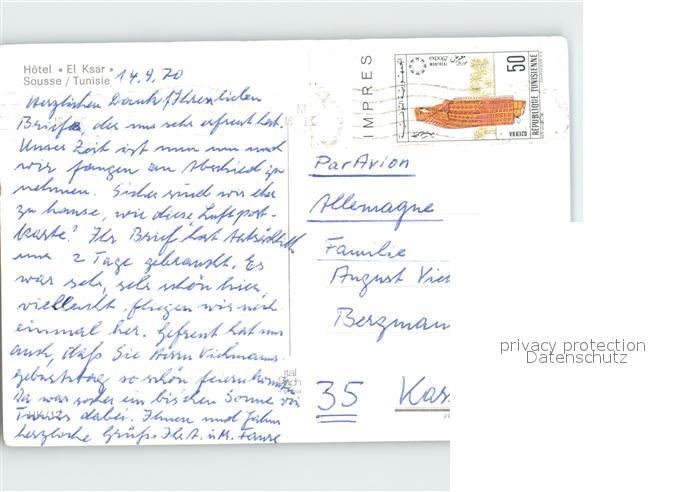 Hôtel • El Ksar •
Sousse / Tunisie
14.9.70
Herzlichen Dank f. Ihren lieben
Brief, der uns sehr erfreut hat.
Unsere Zeit ist nun um und
wir fangen an Abschied zu
nehmen. Sicher sind wir eher
zu hause, wie diese Luftpost-
karte! Ihr Brief hat tatsächlich
nur 2 Tage gebraucht. Es
war sehr, sehr schön hier,
vielleicht fliegen wir noch
einmal her. Gefreut hat uns
auch, daß Sie Herrn Viehmanns
geburtstag so schön feiern konnten
Da war sicher ein bischen Sonne von
Tunis dabei. Ihnen und
herzliche Grüße
IMPRES
MONTREAL
50
REPUBLIQUE TUNISIENNE
DJERBA
Par Avion
Allemagne
Familie
August Vieh
Bergman
35 Kas
privacy protection
Datenschutz